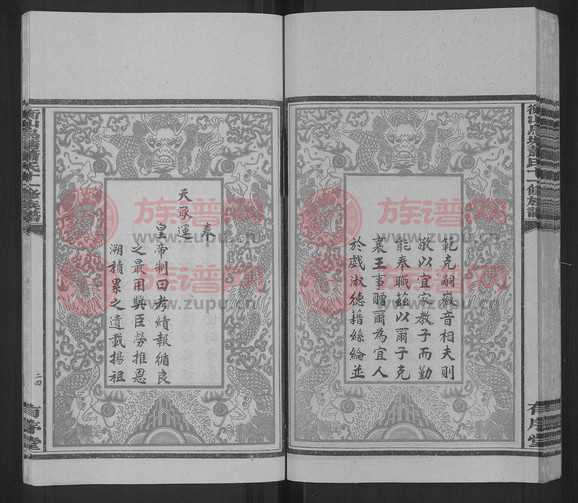 範克嗣徽音相夫則
敬以宜家教子而勤
能奉職茲以爾子克
襄王事贈爾為宜人
於戲淑德籍絲綸並
有序堂
奉
天承運
皇帝制曰考績報循良
之最用獎臣勞推恩
溯積累之遺載揚祖
二四
有序堂
族谱网
www.zupu.cn
族谱网
www.zupu.cn